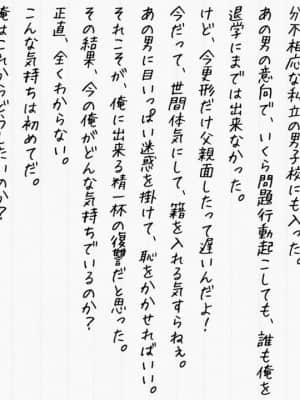 分不相応な私立の男子校にも入った。
あの男の意向で、いくら問題行動起こしても、誰も俺を
退学にまでは出来なかった。
けど、今更形だけ父親面したって遅いんだよ！
今だって、世間体気にして、籍を入れる気すらねぇ。
あの男に目いっぱい迷惑を掛けて、恥をかかせればいい。
それこそが、俺に出来る精一杯の復讐だと思った。
その結果、今の俺がどんな気持ちでいるのか？
正直、全くわからない。
こんな気持ちは初めてだ。
俺はこれからどうしたいのか？